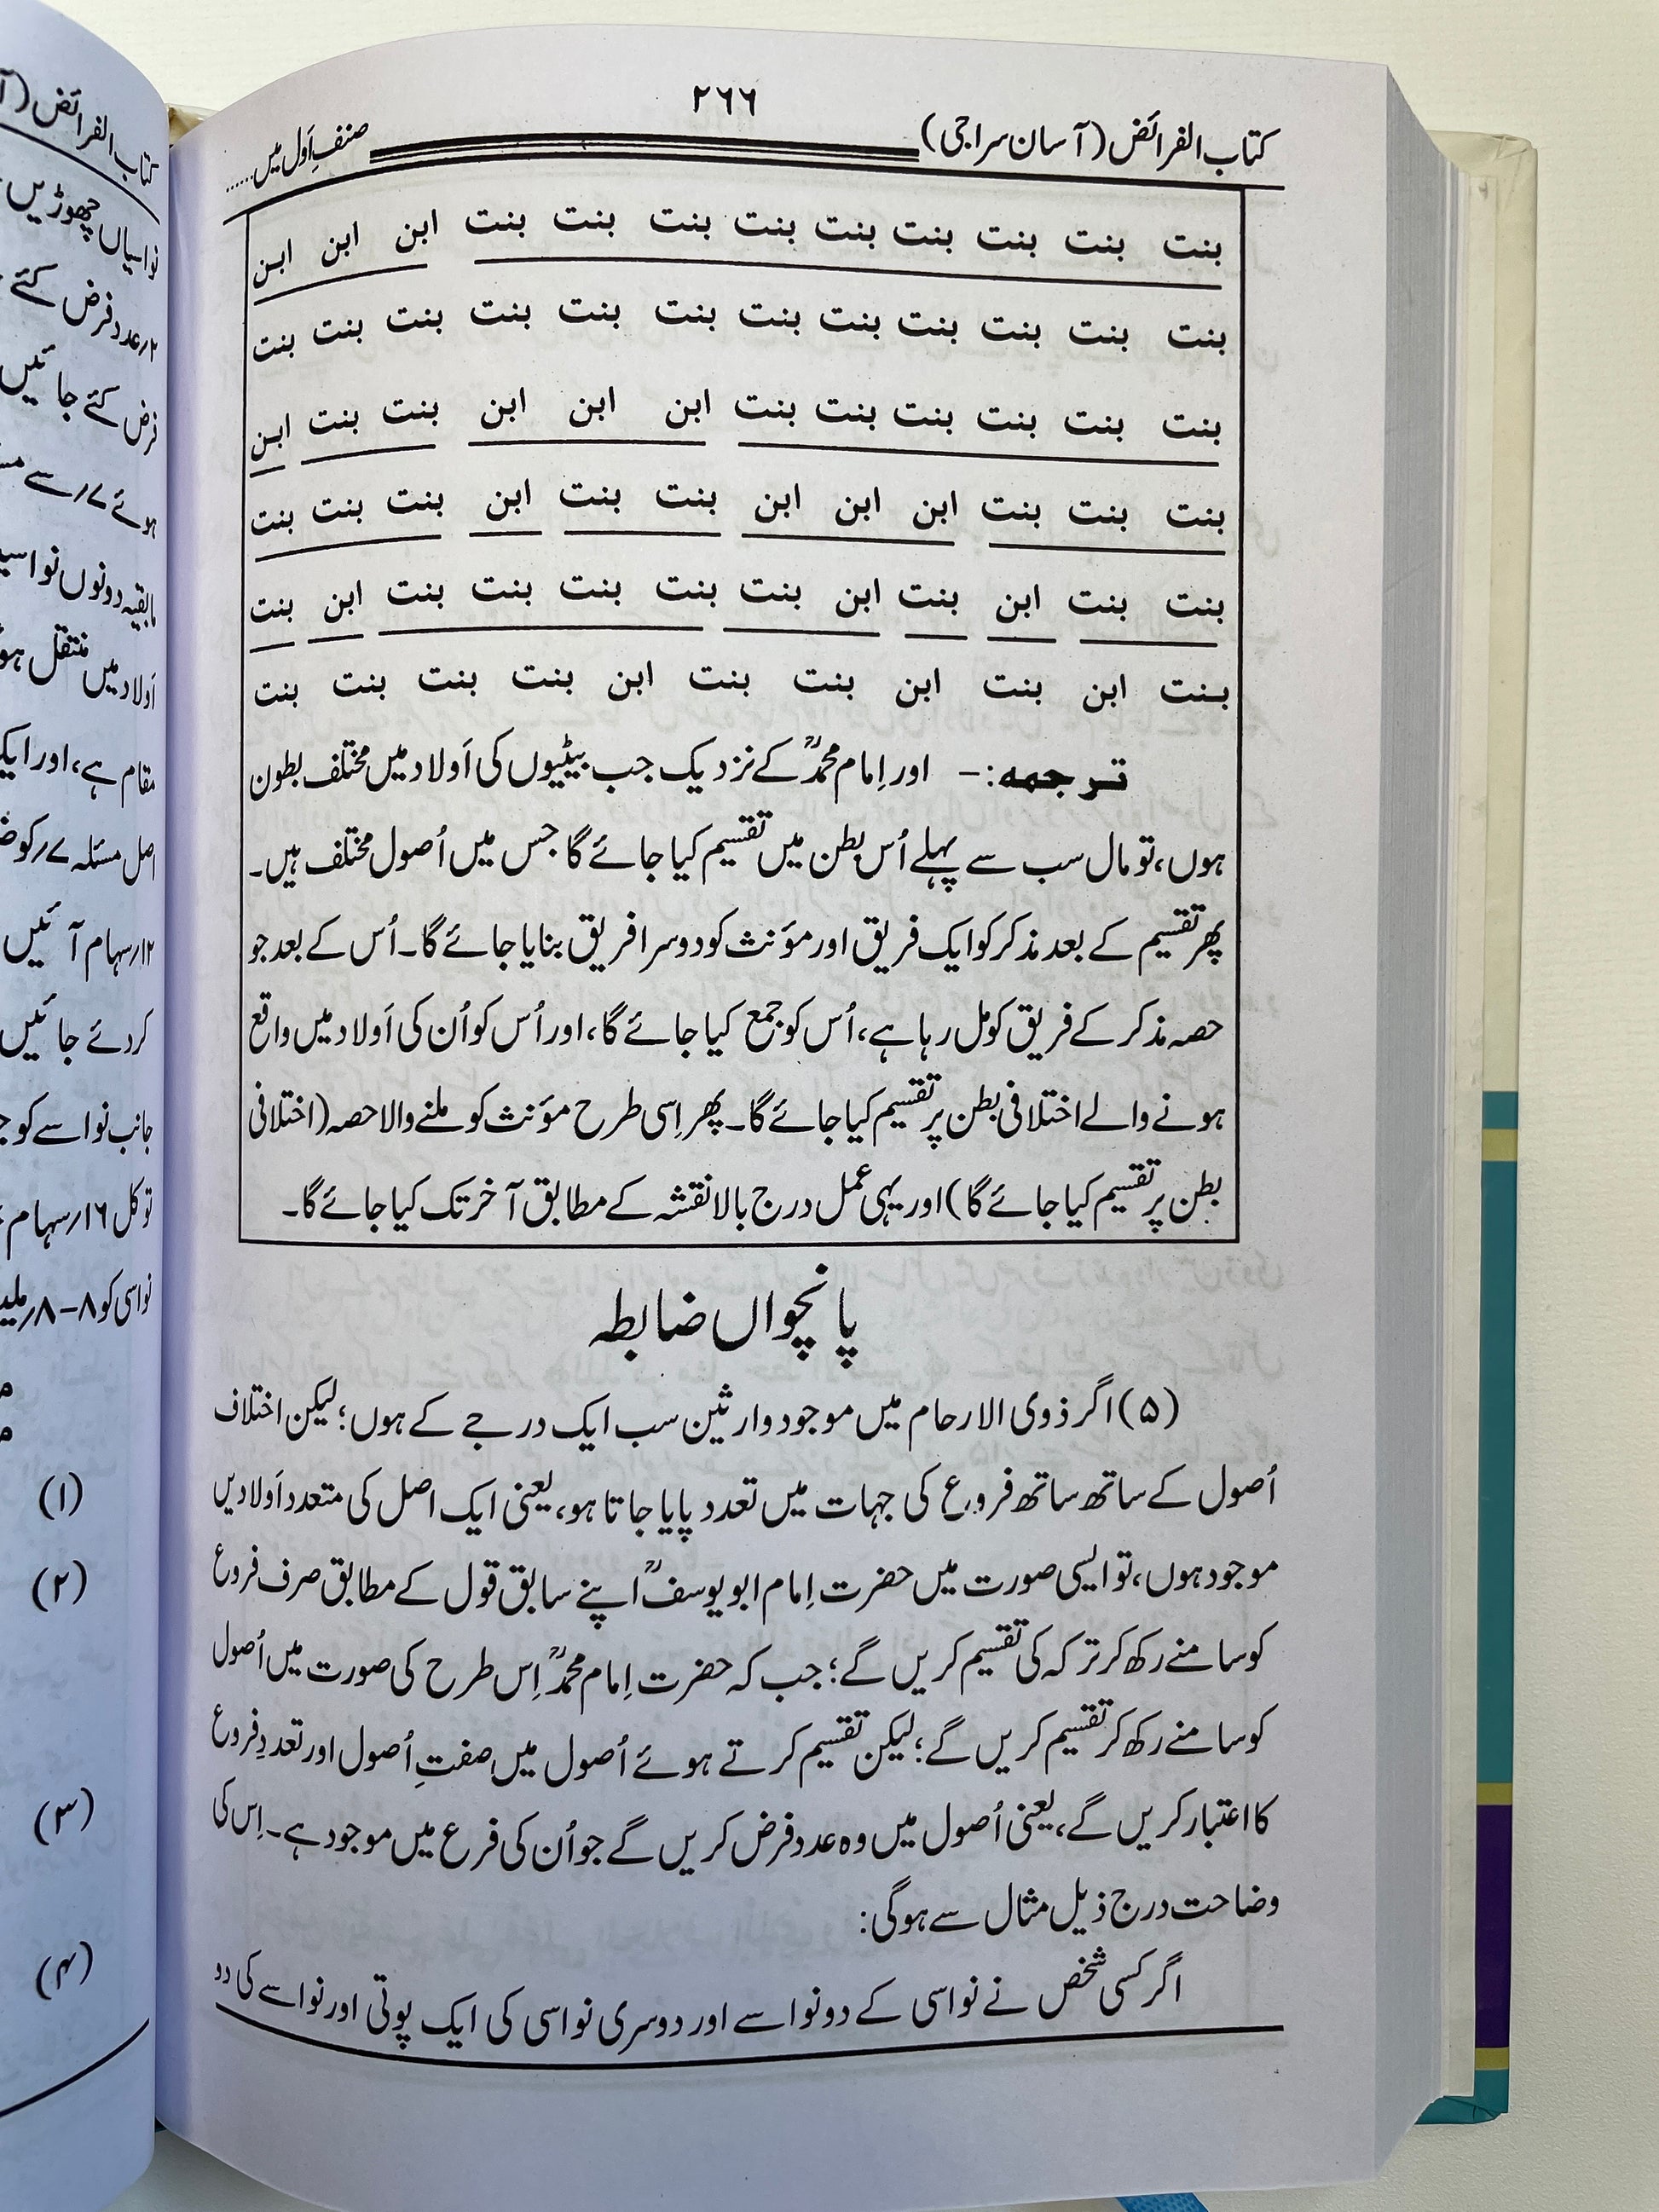 ۲۶۶
کتاب الفرائض (آسان سراجی) صنفِ اَول میں......
بنت بنت بنت بنت بنت بنت بنت بنت بنت ابن ابن ابن
بنت بنت بنت بنت بنت بنت بنت بنت بنت بنت بنت بنت
بنت بنت بنت بنت بنت بنت ابن ابن ابن بنت بنت ابن
بنت بنت بنت ابن ابن ابن بنت بنت ابن بنت بنت بنت
بنت بنت ابن بنت ابن بنت بنت بنت بنت بنت ابن بنت
بنت ابن بنت ابن بنت بنت ابن بنت بنت بنت بنت
ترجمہ:- اور اِمام محمدؒ کے نزدیک جب بیٹیوں کی اَولاد میں مختلف بطون
ہوں، تو مال سب سے پہلے اُس بطن میں تقسیم کیا جائے گا جس میں اُصول مختلف ہیں۔
پھر تقسیم کے بعد مذکر کو ایک فریق اور مؤنث کو دوسرا فریق بنایا جائے گا۔ اُس کے بعد جو
حصہ مذکر کے فریق کو مل رہا ہے، اُس کو جمع کیا جائے گا، اور اُس کو اُن کی اَولاد میں واقع
ہونے والے اختلافی بطن پر تقسیم کیا جائے گا۔ پھر اِسی طرح مؤنث کو ملنے والا حصہ (اختلافی
بطن پر تقسیم کیا جائے گا) اور یہی عمل درج بالا نقشہ کے مطابق آخر تک کیا جائے گا۔
پانچواں ضابطہ
(۵) اگر ذوی الارحام میں موجود وارثین سب ایک درجے کے ہوں؛ لیکن اختلاف
اُصول کے ساتھ ساتھ فروع کی جہات میں تعدد پایا جاتا ہو، یعنی ایک اصل کی متعدد اَولادیں
موجود ہوں، تو ایسی صورت میں حضرت اِمام ابو یوسفؒ اپنے سابق قول کے مطابق صرف فروع
کو سامنے رکھ کر ترکہ کی تقسیم کریں گے؛ جب کہ حضرت اِمام محمدؒ اِس طرح کی صورت میں اُصول
کو سامنے رکھ کر تقسیم کریں گے؛ لیکن تقسیم کرتے ہوئے اُصول میں صفتِ اُصول اور تعددِ فروع
کا اعتبار کریں گے، یعنی اُصول میں وہ عدد فرض کریں گے جو اُن کی فرع میں موجود ہے۔ اِس کی
وضاحت درج ذیل مثال سے ہوگی:
اگر کسی شخص نے نواسی کے دو نواسے اور دوسری نواسی کی ایک پوتی اور نواسے کی دو
کتاب الفرائض (آ
نواسیاں چھوڑیں
۲/عدد فرض کئے
فرض کئے جائیں
ہوئے ۷/سے
مابقیہ دونوں نواسیـ
اَولاد میں منتقل ہو
مقام ہے، اور ایک
اصل مسئلہ ۷/کو
۱۲/سہام آئیں
کردئے جائیں
جانب نواسے کو
تو کل ۱۶/سہام
نواسی کو ۸-۸/
(۱)
(۲)
(۳)
(۴)